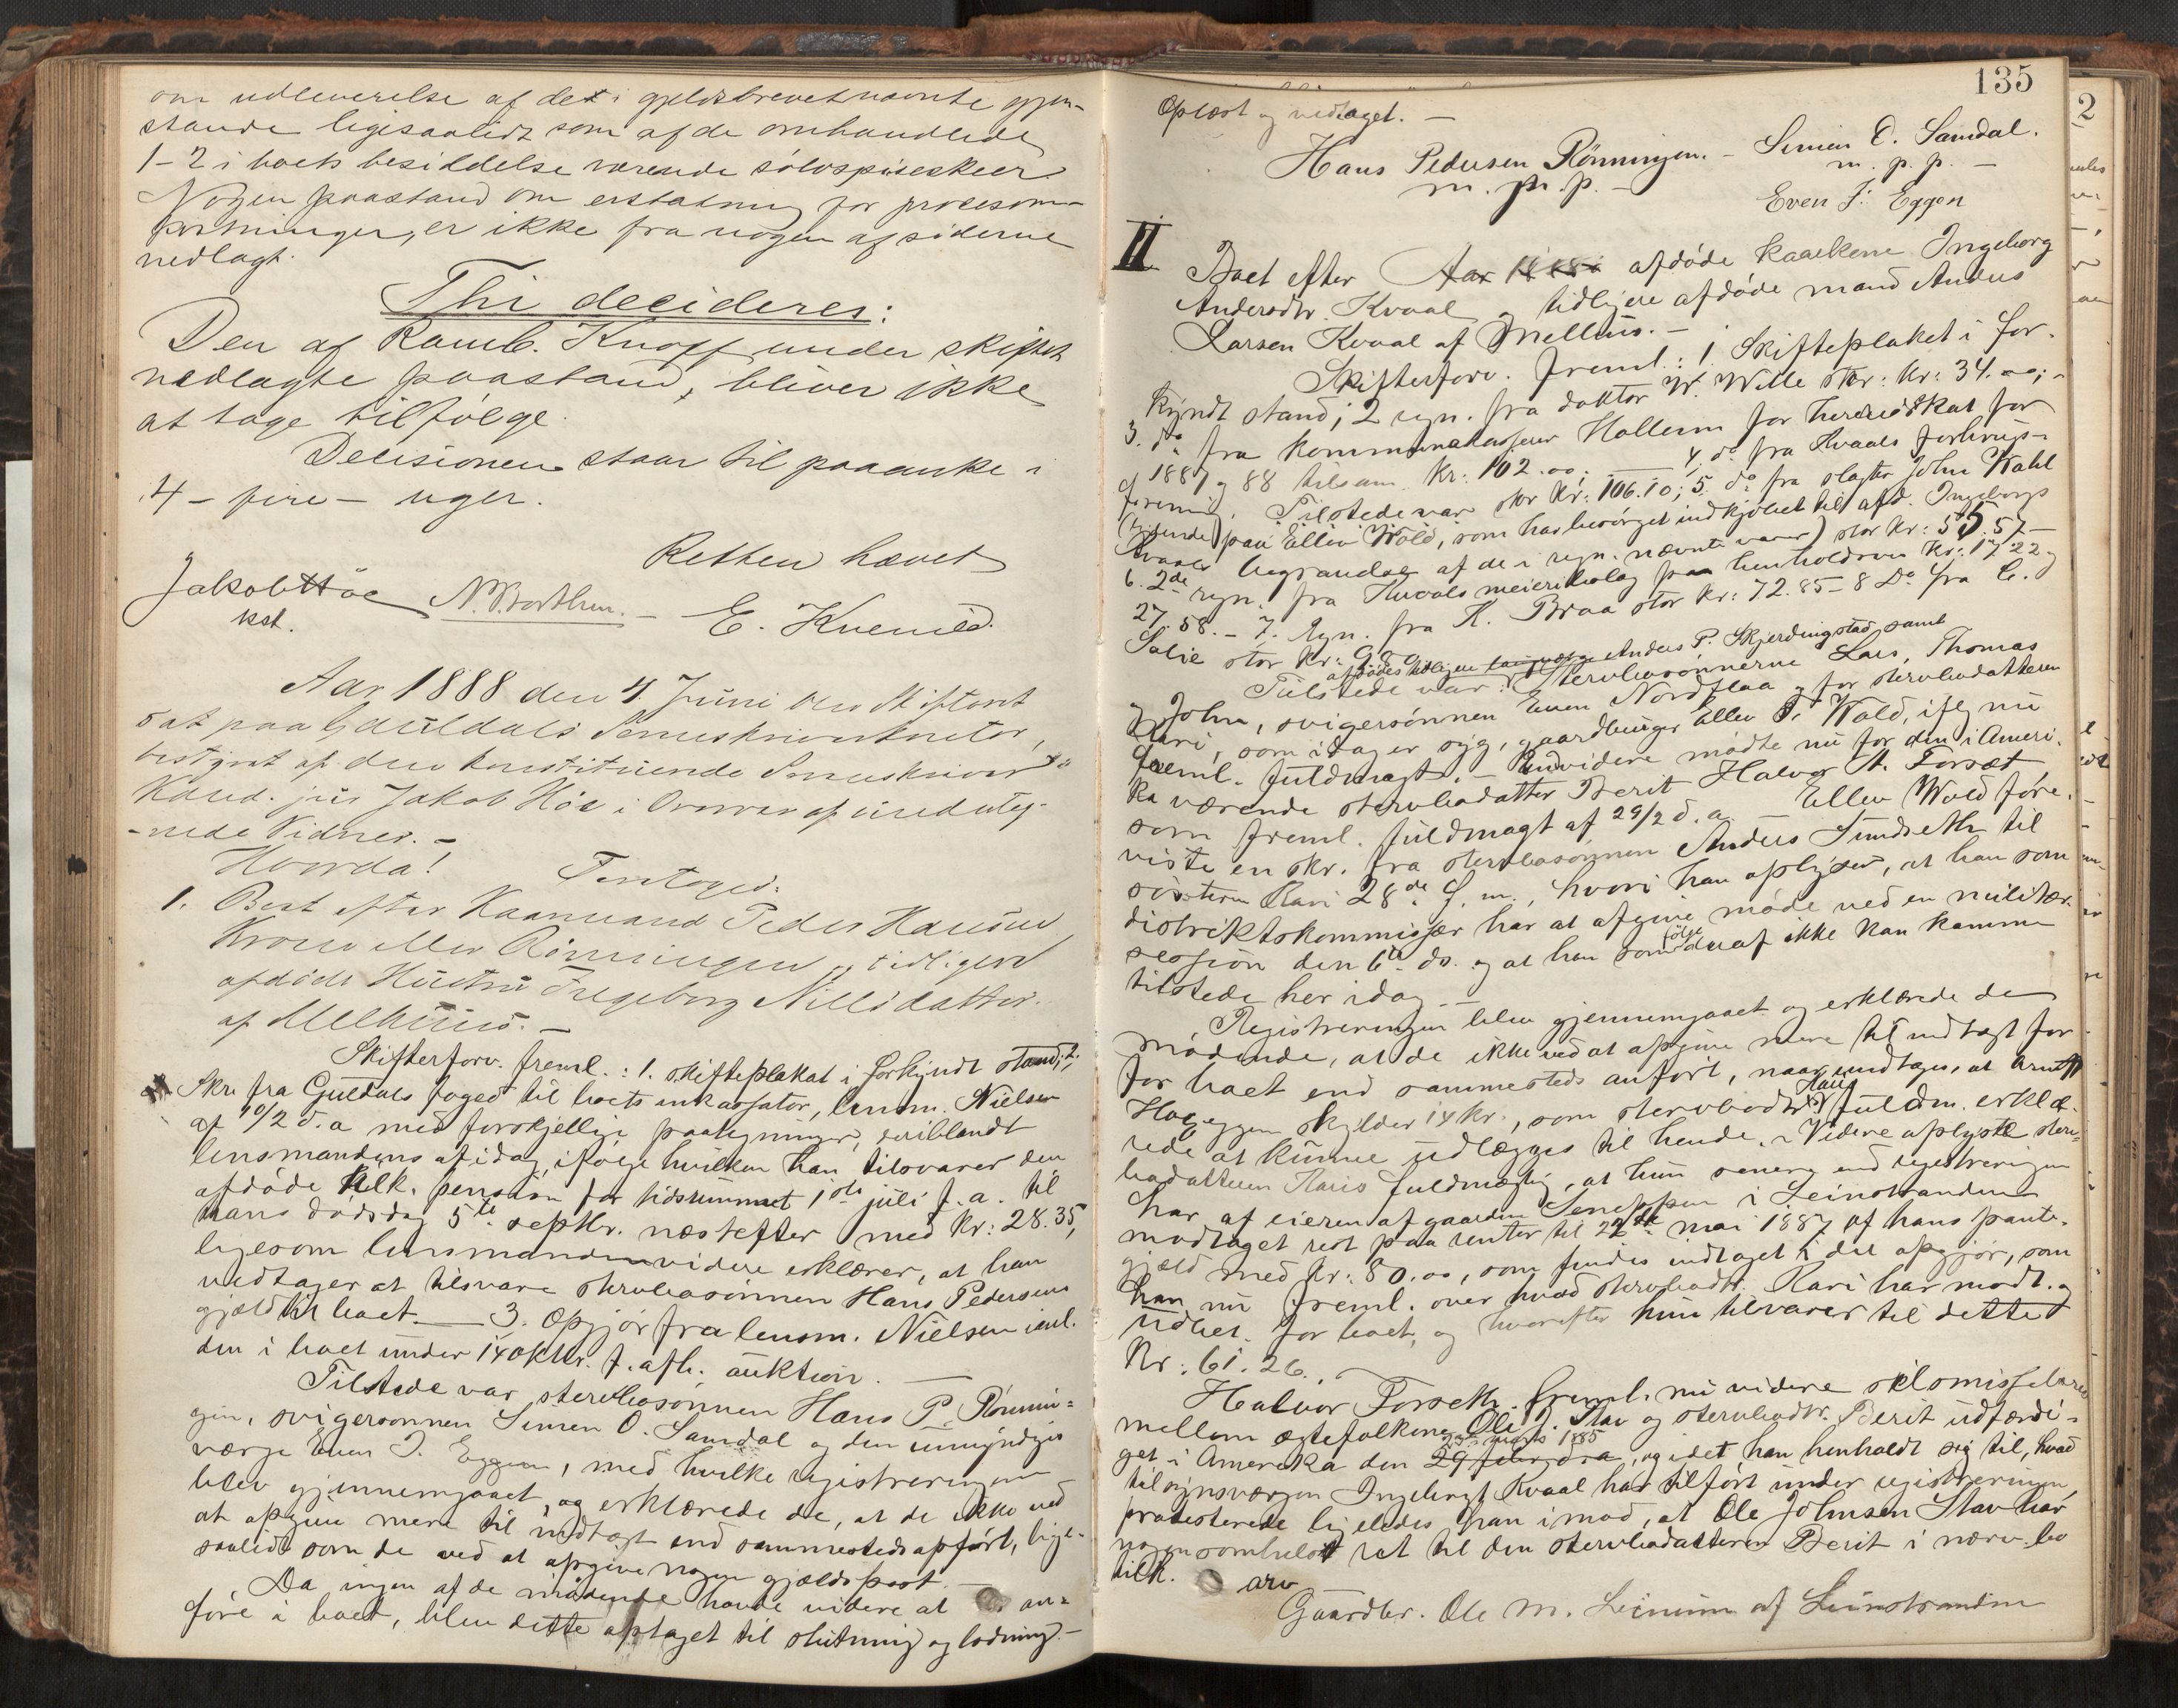 om udleverelse af det i gjeldsbrevet nævnte gjen-
stande ligesaalidt som af de omhandlede
1-2 i boets besiddelse værende sølvspiseskeer
Nogen paastand om erstatning for procesom-
kostninger, er ikke fra nogen af siderne
nedlagt.
Thi decideres:
Den af Knoff under skiftet
nedlagte paastand, bliver ikke
at tage tilfølge.
Decisionen staar til paaanke i
4 - fire - uger.
Retten hævet
Jakob Höe N. E. Kvenild.
kst.
Aar 1888 den 4 Juni blev Skifteret
sat paa Guldals Sorenskriverkontor,
bestyret af den konstituerede Sorenskriver
Kand. jur Jakob Höe i Overvær af undteg-
nede Vidner. -
Hvorda! Foretoges:
1. Boet efter Kaarmand Peder Hansen
eller Rönningen og tidligere
afdöde Hustru Ingeborg Nilsdatter
af Melhuus. -
Skifteforv. freml.: 1. skifteplakat i forkyndt stand; 2.
Skr. fra Guldals foged til boets inkassator, lensm. Nielsen
af 10/2 d. a. med forskjellige paategninger, deriblandt
lensmandens af idag, ifølge hvilken han tilsvarer den
afdöde tilk. pension for tidsrummet 1ste juli f. a. til
hans dödsdag 5te septbr. næstefter med Kr: 28.35,
ligesom lensmanden videre erklærer, at han
vedtager at tilsvare stervbosönnen Hans Pedersens
gjæld til boet. — 3. Opgjör fra lensm. Nielsen
den i boet under 14 oktbr. f. a. afh. auktion. —
Tilstede var stervbosönnen Hans P. Rönnin-
gen, svigersönnen Simen O. Samdal og den umyndiges
værge Even J. Eggen, med hvilke registreringen
blev gjennemgaaet, og erklærede de, at de ikke ved
at opgive mere til indtægt end sammesteds opfört, lige-
saalidt som de ved at opgive nogen gjældspost. —
Da ingen af de mödende havde videre at an-
före i boet, blev dette optaget til slutning og lodning. -
135
Oplæst og vedtaget. —
Hans Pedersen Rönningen. - Simen O. Samdal.
m. p. p. - m. p. p. -
Even J. Eggen
II Boet efter Aar 1888 afdöde kaarkone Ingeborg
Andersdtr. Kvaal og tidligere afdöde mand Anders
Larsen Kvaal af Melhus. -
Skifteforv. freml.: 1 Skifteplaket i for-
kyndt stand; 2 regn. fra doktor W. Wille stor: Kr: 34.00; -
3. do fra kommunekasserer Hollum for herredsskat for
1887 og 88 tilsam. Kr: 102.00; — 4. do fra Kvaals forbrugs-
forening. Tilstede var stor Kr: 106.10; 5. do fra slagter John Wahl
(lydende paa Ellev Wold, som har besörget indkjöbet til afd. Ingeborgs
Kvaals begravelse af de i regn. nævnte varer) stor Kr: 55.57 —
6. 2de regn. fra Huvals meieribolag paa henholdsvis Kr: 17.22 og
27.58. - 7. Regn. fra K. Braa stor Kr: 72.85 - 8 Do fra C.
Salie stor Kr: 9.80
afdödes tidligere Anders P. Skjerdingstad samt
Tilstede var: Stervbosönnerne Lars, Thomas
og John, svigersönnen Even Nordflaa og for stervbodatteren
Kari, som idag er syg, gaardbruger Ellev T. Wold, ifg nu
freml. fuldmagt. - Endvidere mödte nu for den i Ameri-
ka værende stervbodatter Berit Halvor A. Forsæt,
som freml. fuldmagt af 29/2 d. a. — Ellev Wold fore-
viste en skr. fra stervbosönnen Anders Sundseth til
sösteren Kari 28de f. m., hvori han oplyser, at han som
distriktskommissær har at afgive möde ved en militær-
session den 6te ds. og at han som fölge deraf ikke kan komme
tilstede her idag. -
Registreringen blev gjennemgaaet og erklærede de
mödende, at de ikke ved at opgive mere til indtægt for
for boet end sammesteds anfört, naar undtages, at Arnt
Hageggen skylder 14 Kr., som stervbodtr. Karis fuldm. erklæ-
rede at kunne udlægges til hende. - Videre oplyste sterv-
bodatteren Karis fuldmægtig, at hun senere end registreringen
har af eieren af gaarden i Leinstranden
modtaget rest paa renter til 22de mai 1887 af hans pante-
gjæld med Kr: 80.00, som findes indtaget i det opgjör, som
han nu freml. over hvad stervbodtr. Kari har modt. og
udbet. for boet, og hvorefter hun tilsvarer til dette
Kr: 61.26. —
Halvor Forseth freml. nu videre skilsmissebrev
mellem ægtefolkene Ole J. Stav og stervbodtr. Berit udfærdi-
25de marts 1885
get i Amerika den 29 febr. d a, og idet han henholdt sig til, hvad
tilsynsværgen Ingebrigt Kvaal har tilfört under registreringen,
protesterede ligeledes han imod, at Ole Johnsen Stav har
nogensomhelst ret til den stervbodatteren Berit i nærv. bo
tilk. arv
Gaardbr. Ole M. Leinum af Leinstranden